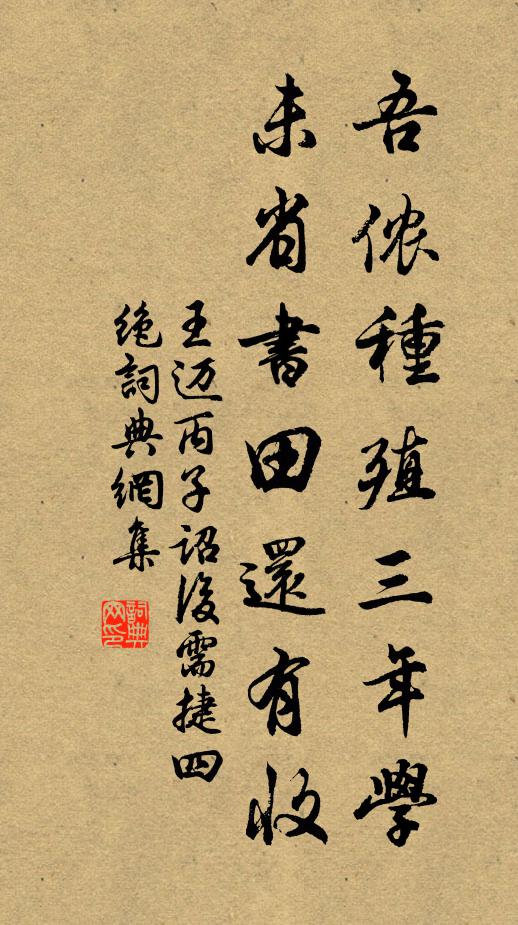 吾侬種殖三年學
未省書田還有收
王迈丙子詔後需捷四
绝詞典網集
詞典
网印